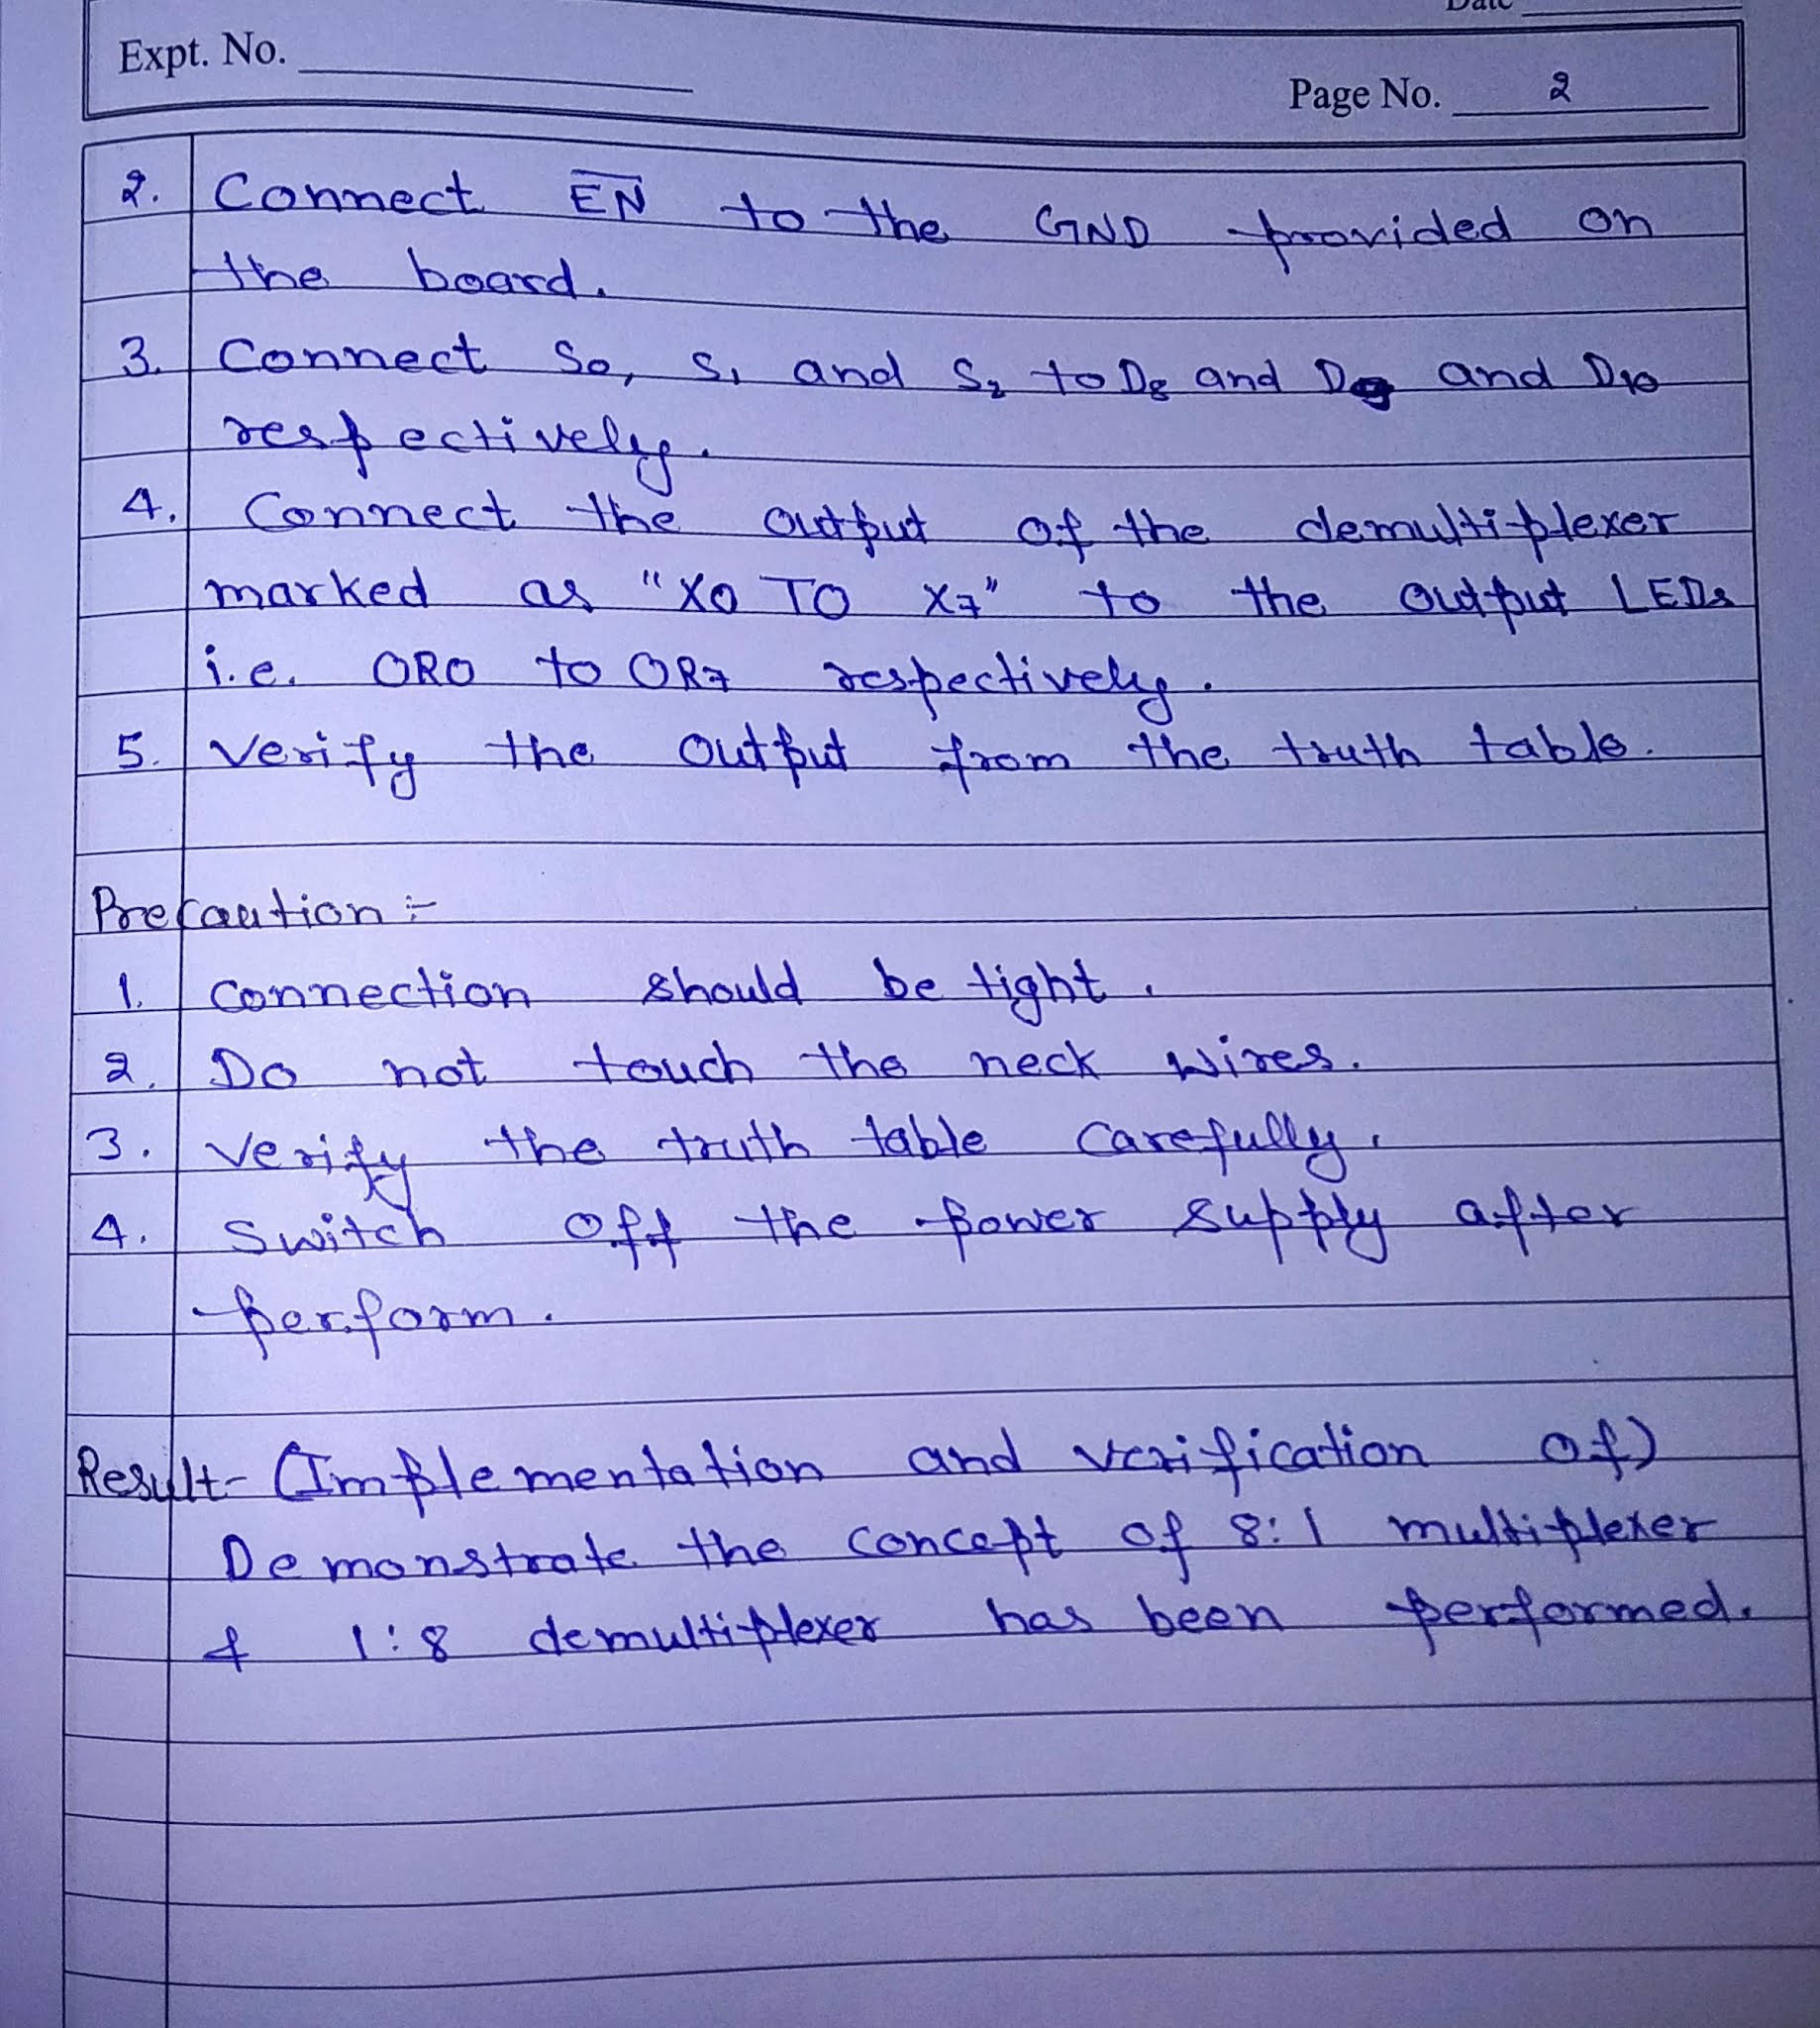 Date
Expt. No.
Page No. 2
2. Connect E̅N̅ to the GND provided on
the board.
3. Connect S0, S1 and S2 to D8 and D9 and D10
respectively.
4. Connect the output of the demultiplexer
marked as "X0 TO X7" to the output LEDs
i.e. OR0 to OR7 respectively.
5. Verify the output from the truth table.
Precaution :-
1. Connection should be tight.
2. Do not touch the neck wires.
3. Verify the truth table carefully.
4. Switch off the power supply after
perform.
Result- (Implementation and verification of)
Demonstrate the concept of 8:1 multiplexer
& 1:8 demultiplexer has been performed.